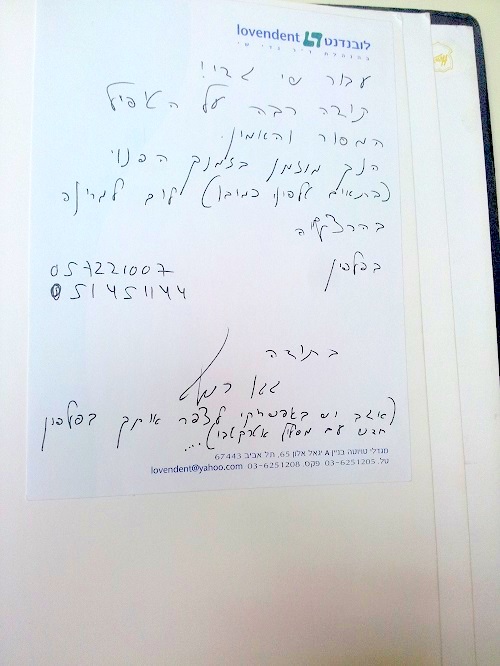 lovendent לובנדנט
עבור מי גבי!
תודה רבה על הטיפול
המסור והאמין.
הנך מוזמן בזמנך הפנוי
(בתיאום טלפוני כמובן) לבוא
בהרצליה
בפלפון
057221007
051451144
בתודה
(אגב יש באפשרותי לצפר אותך בפלפון
חדש עם מסלול אטרקטיבי)....
מגדלי טויוטה בניין A יגאל אלון 65, תל אביב 67443
טל. 03-6251205 פקס. 03-6251208 lovendent@yahoo.com